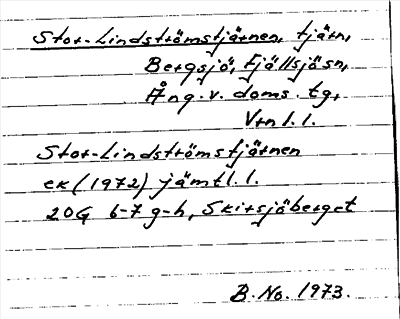 Stor-Lindströmstjärnen, tjärn,
Bergsjö, Fjällsjö sn,
Ång. v. doms. tg,
Vrn l. l.
Stor-Lindströmstjärnen
ek (1972) jämtl. l.
20G 6-7 g-h, Skirsjöberget
B. No. 1973.